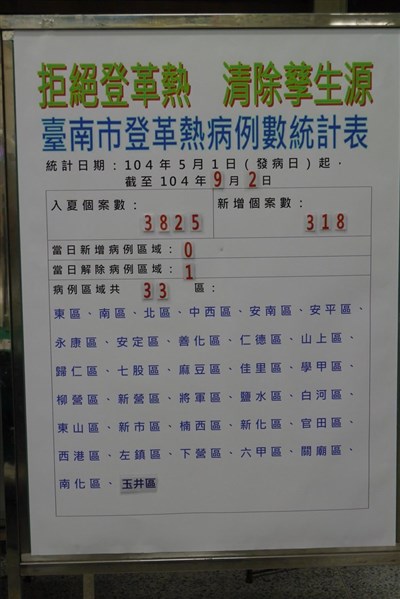 拒絕登革熱　清除孳生源
臺南市登革熱病例數統計表
統計日期：104年5月1日(發病日)起，
截至104年9月2日
入夏個案數：3825　新增個案數：318
當日新增病例區域：0
當日解除病例區域：1
病例區域共 33 區：
東區、南區、北區、中西區、安南區、安平區、
永康區、安定區、善化區、仁德區、山上區、
歸仁區、七股區、麻豆區、佳里區、學甲區、
柳營區、新營區、將軍區、鹽水區、白河區、
東山區、新市區、楠西區、新化區、官田區、
西港區、左鎮區、下營區、六甲區、關廟區、
南化區、玉井區